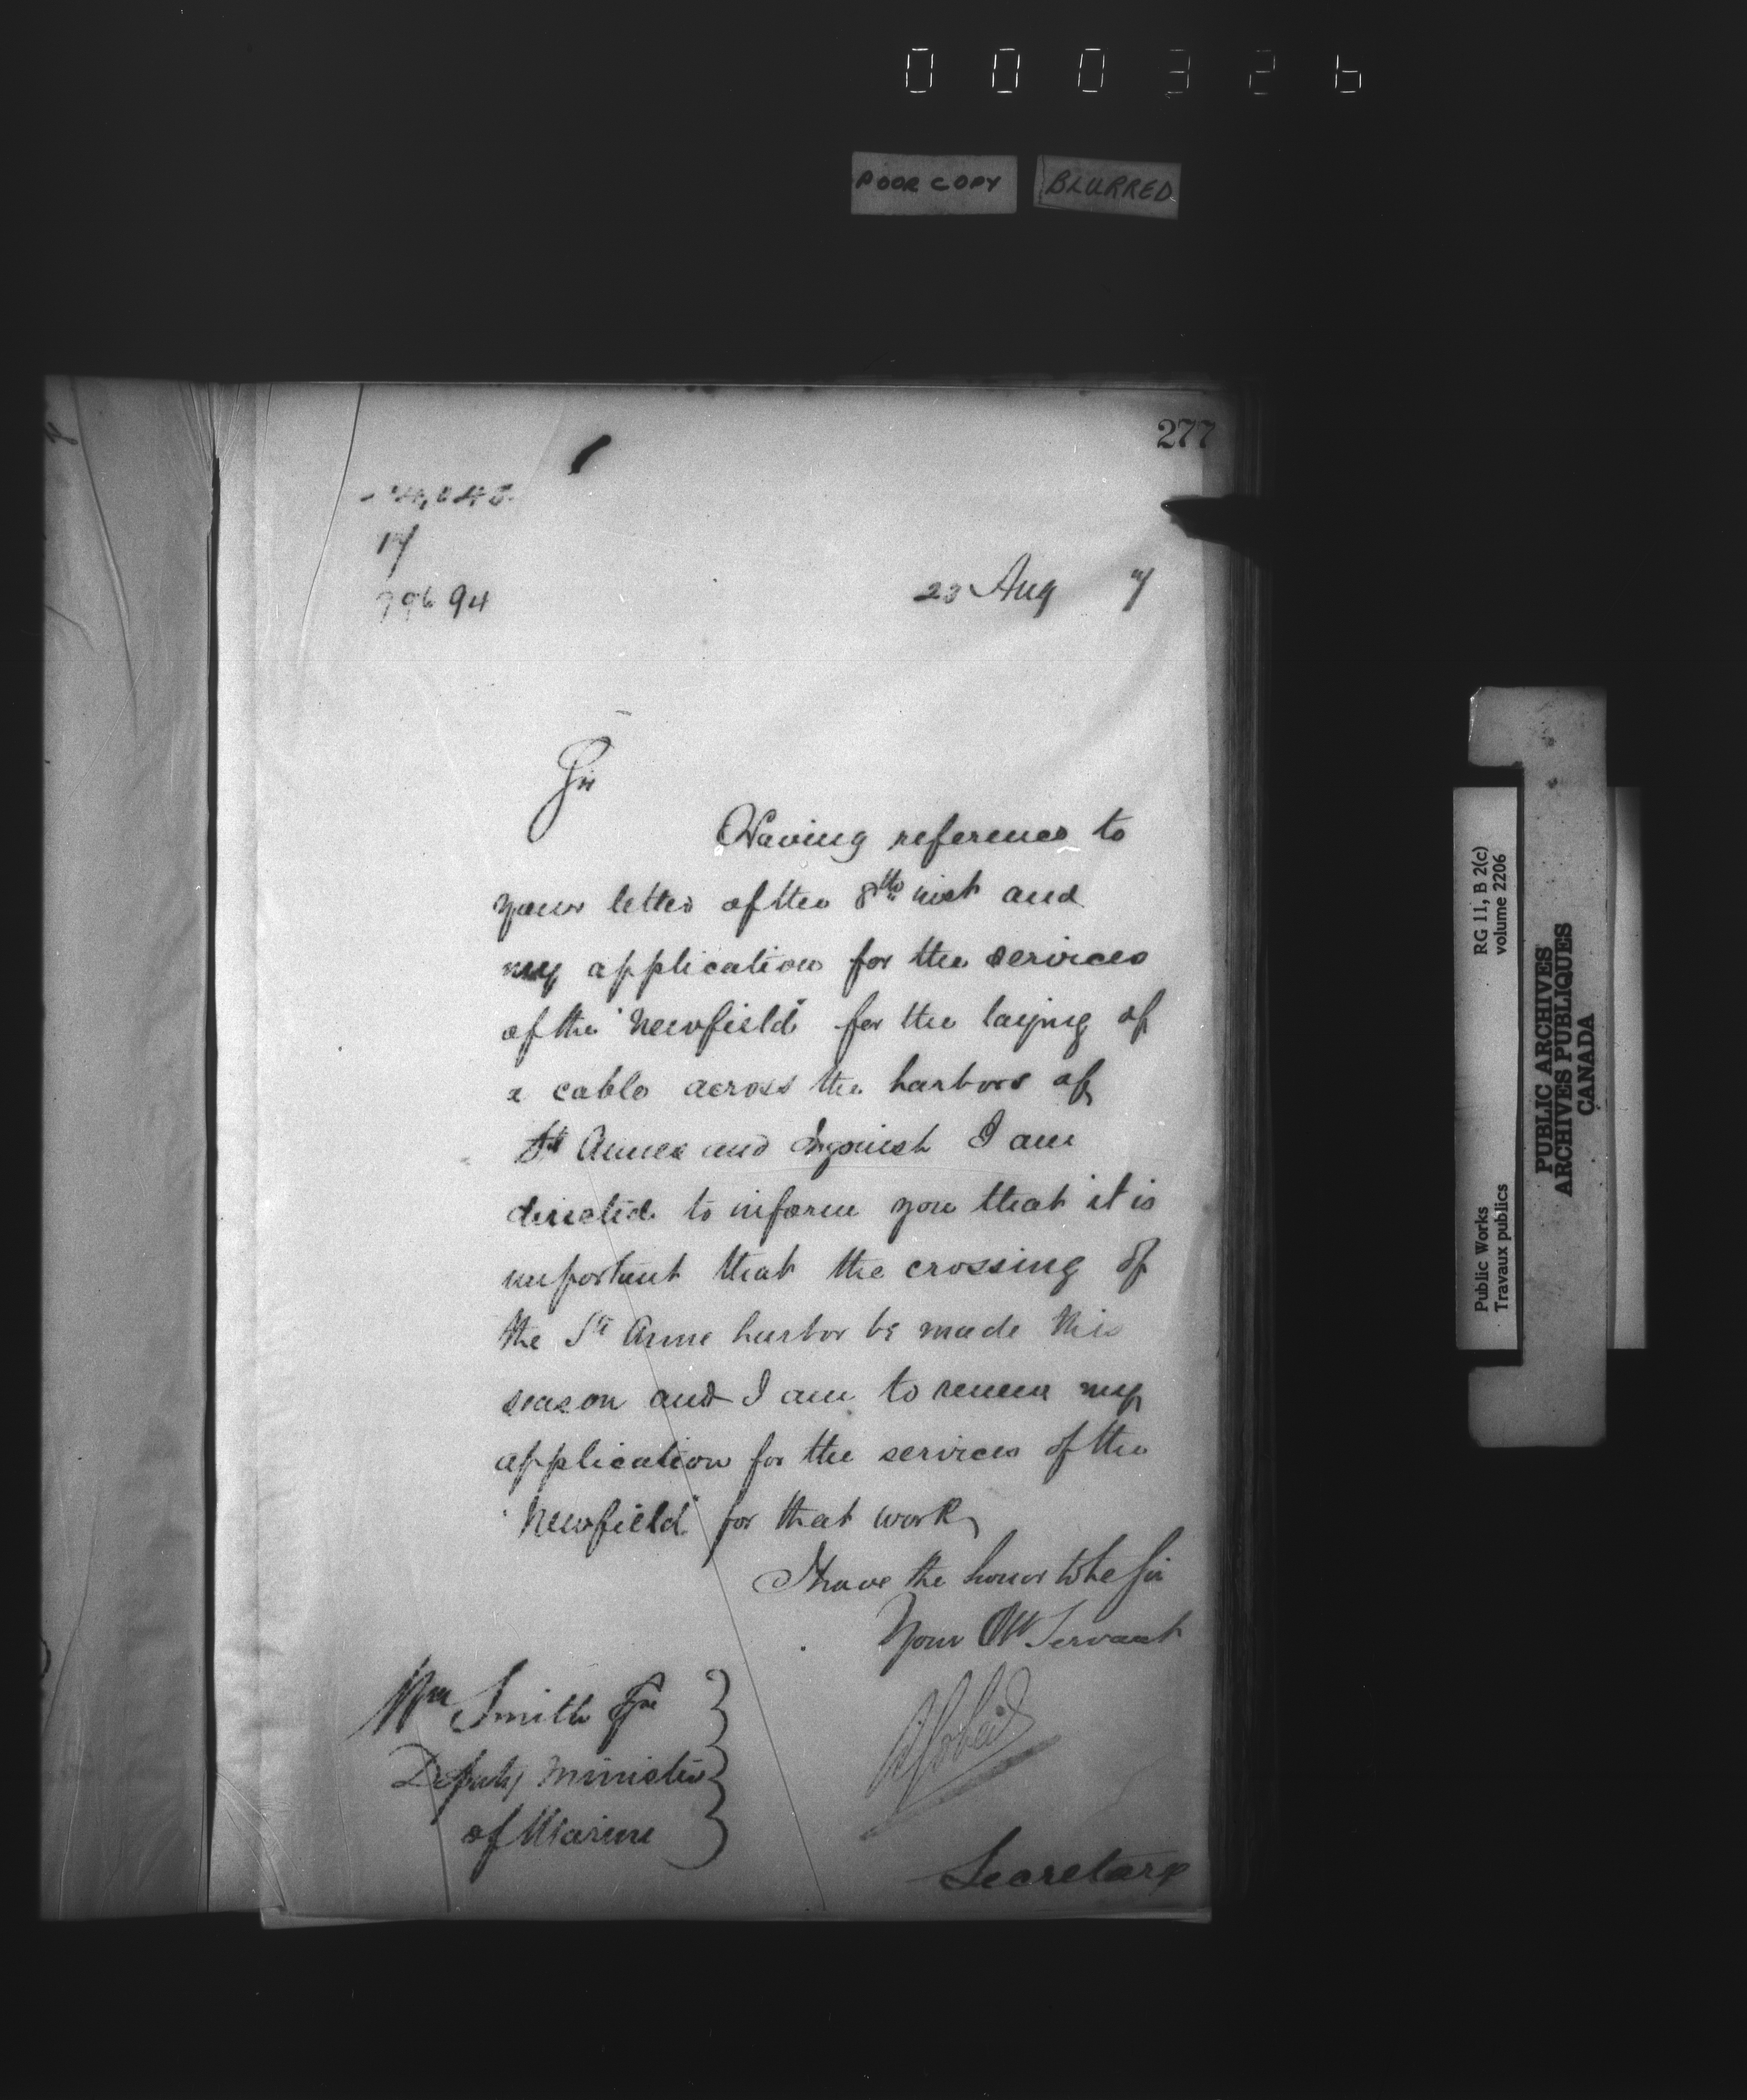 000326
POOR COPY BLURRED
277
17
23 Aug 7
Sir
Having reference to
your letter of the 8th inst and
my application for the services
of the "Newfield" for the laying of
a cable across the harbors of
St Annes and Ingonish I am
directed to inform you that it is
important that the crossing of
the St Anne harbor be made this
season and I am to renew my
application for the services of the
"Newfield" for that work
I have the honor to be Sir
Your Obt Servant
Wm Smith Esqre
Deputy Minister
of Marine
Secretary
RG 11, B 2(c)
volume 2206
Public Works
Travaux publics
PUBLIC ARCHIVES
ARCHIVES PUBLIQUES
CANADA